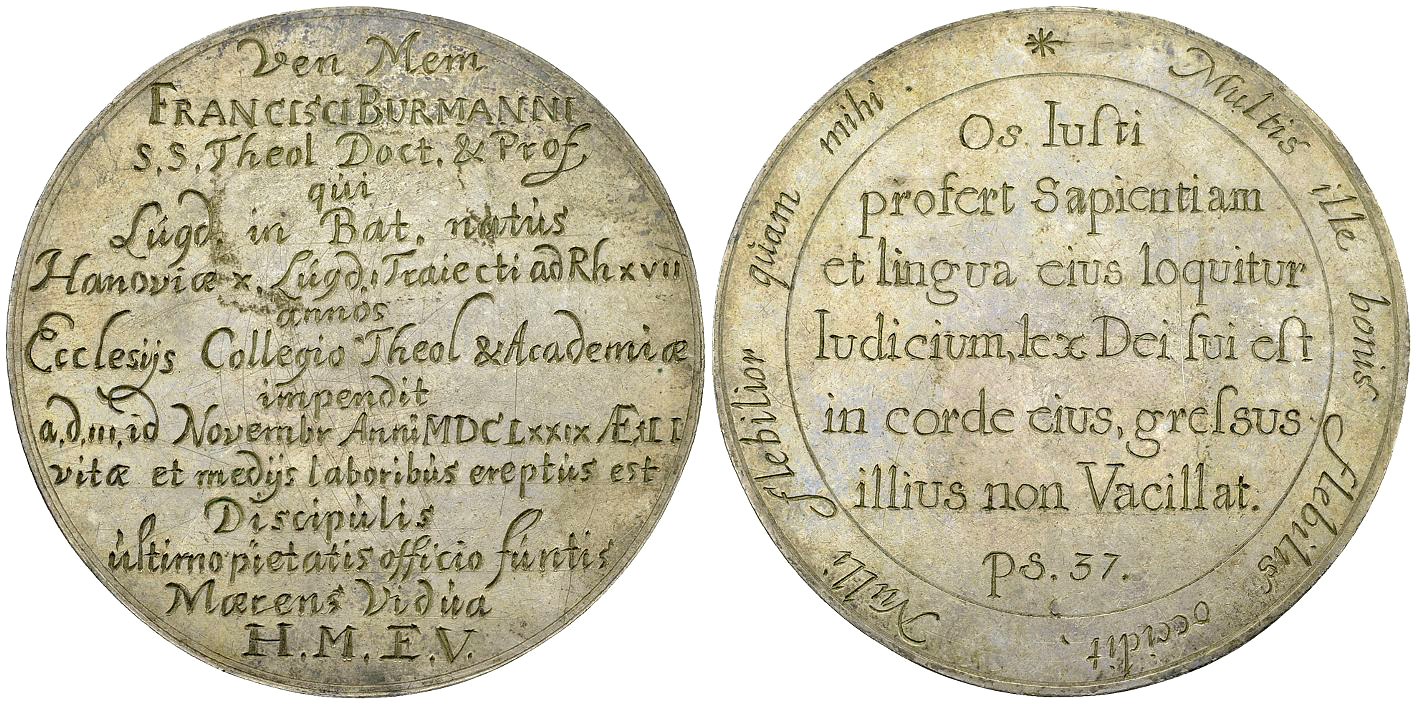 Ven Mem
FRANCISCI BURMANNI
S.S. Theol Doct. & Prof.
qui
Lúgd. in Bat. natús
Hanoviæ x. Lúgd. Traiecti ad Rh xvii
annos
Ecclesijs Collegio Theol & Academiæ
impendit
a.d.iii.id Novembr Anni MDCLxxix Æt LI
vitæ et medijs laboribús ereptús est
Discipúlis
último pietatis officio fúntis
Mærens Vidúa
H.M.F.V.
* Multis ille bonis flebilis occidit, Nulli flebilior quam mihi.
Os Iuſti
profert Sapientiam
et lingva eius loquitur
Iudicium, lex Dei ſui eſt
in corde eius, greſsus
illius non Vacillat.
ps. 37.